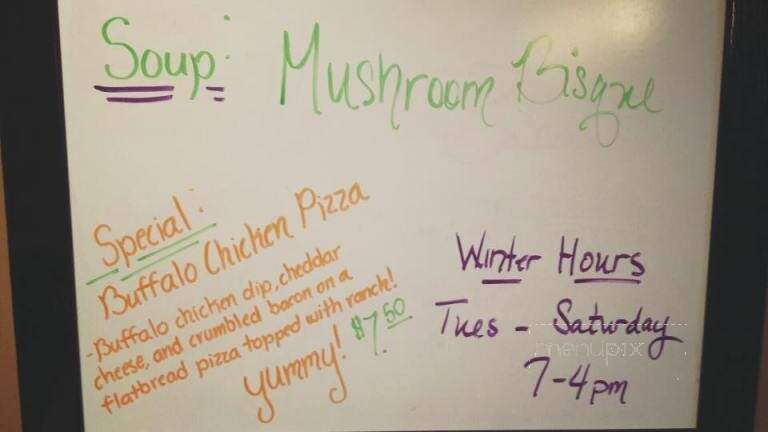 Soup: Mushroom Bisque
Special:
Buffalo Chicken Pizza
- Buffalo chicken dip, cheddar
cheese, and crumbled bacon on a
flatbread pizza topped with ranch!
yummy! $7.50
Winter Hours
Tues - Saturday
7-4pm
menupix